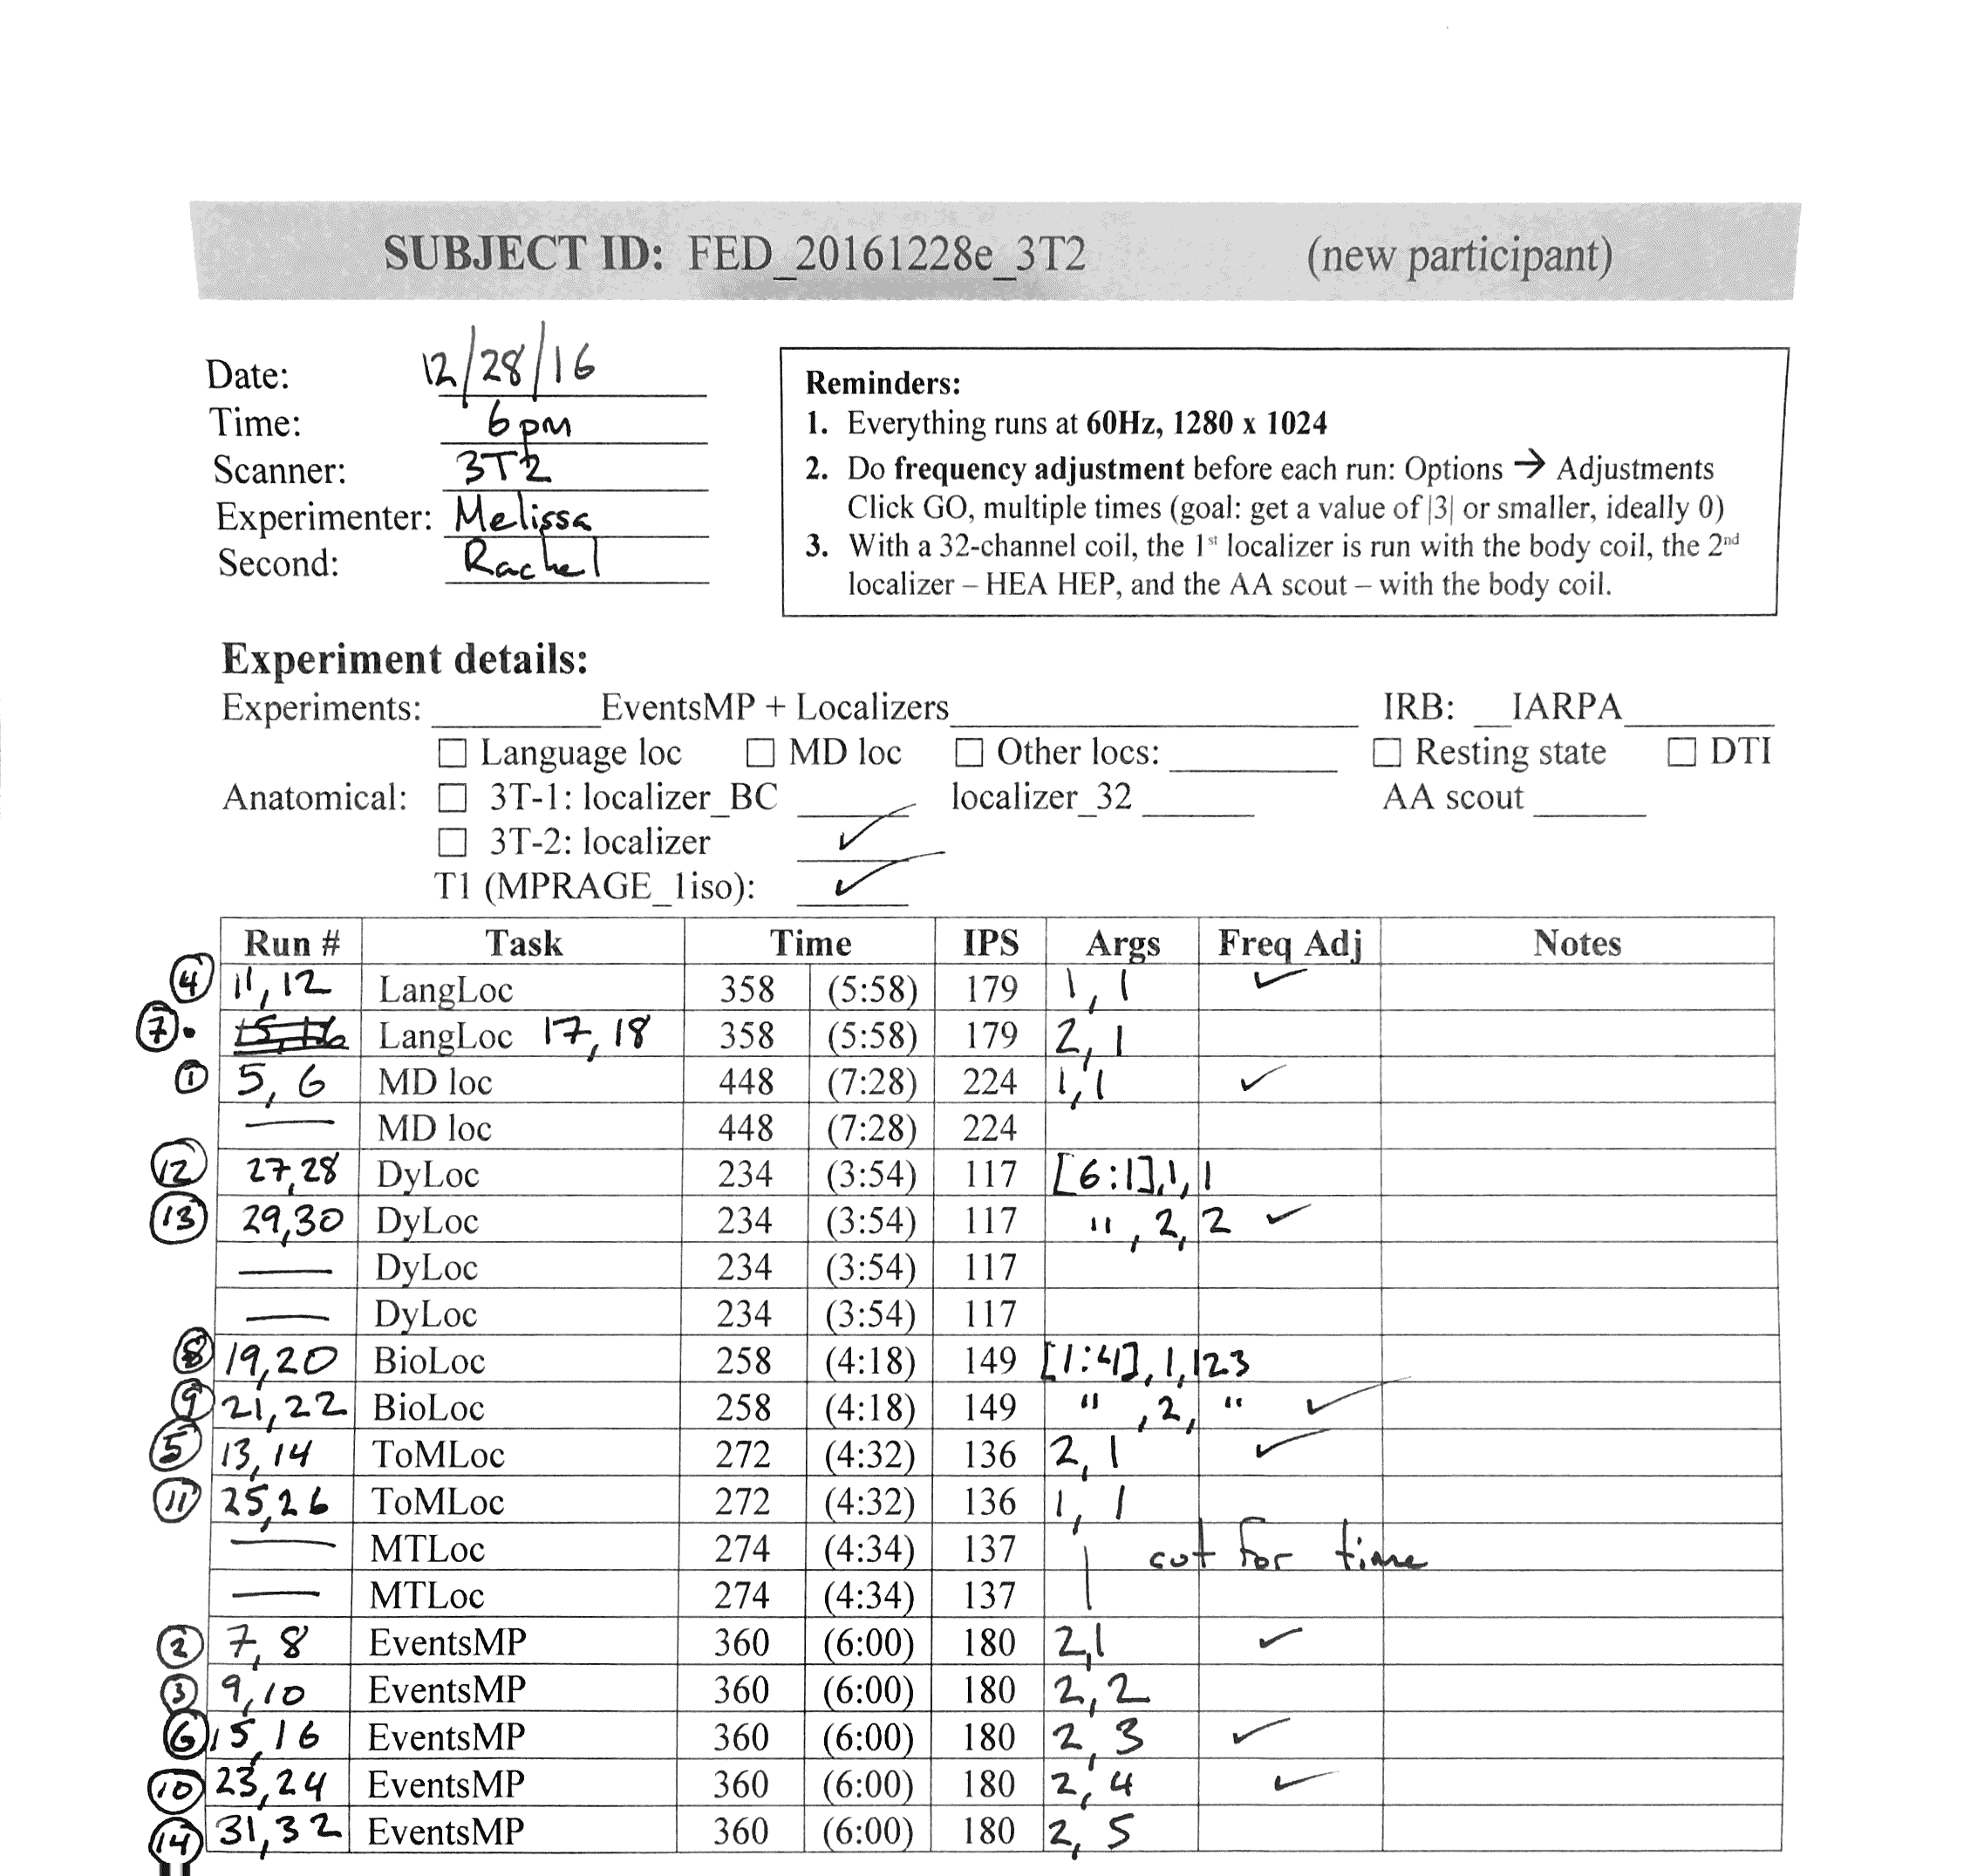 SUBJECT ID: FED_20161228e_3T2 (new participant)
Date: 12/28/16
Time: 6pm
Scanner: 3T2
Experimenter: Melissa
Second: Rachel
Reminders:
1. Everything runs at 60Hz, 1280 x 1024
2. Do frequency adjustment before each run: Options → Adjustments
Click GO, multiple times (goal: get a value of |3| or smaller, ideally 0)
3. With a 32-channel coil, the 1st localizer is run with the body coil, the 2nd
localizer – HEA HEP, and the AA scout – with the body coil.
Experiment details:
Experiments: ________EventsMP + Localizers____________________ IRB: __IARPA________
☐ Language loc ☐ MD loc ☐ Other locs: ________ ☐ Resting state ☐ DTI
Anatomical: ☐ 3T-1: localizer_BC ______ localizer_32 ______ AA scout ______
☐ 3T-2: localizer ✓
T1 (MPRAGE_1iso): ✓
Run # Task Time IPS Args Freq Adj Notes
④ 11, 12 LangLoc 358 (5:58) 179 1, 1 ✓
⑦. 15, 16 LangLoc 17, 18 358 (5:58) 179 2, 1
① 5, 6 MD loc 448 (7:28) 224 1, 1 ✓
— MD loc 448 (7:28) 224
⑫ 27,28 DyLoc 234 (3:54) 117 [6:1],1,1
⑬ 29,30 DyLoc 234 (3:54) 117 ", 2, 2 ✓
— DyLoc 234 (3:54) 117
— DyLoc 234 (3:54) 117
⑧ 19,20 BioLoc 258 (4:18) 149 [1:4],1,123
⑨ 21,22 BioLoc 258 (4:18) 149 " ,2, " ✓
⑤ 13, 14 ToMLoc 272 (4:32) 136 2, 1 ✓
⑪ 25,26 ToMLoc 272 (4:32) 136 1, 1
— MTLoc 274 (4:34) 137 cut for time
— MTLoc 274 (4:34) 137
② 7, 8 EventsMP 360 (6:00) 180 2,1 ✓
③ 9,10 EventsMP 360 (6:00) 180 2, 2
⑥ 15,16 EventsMP 360 (6:00) 180 2, 3 ✓
⑩ 23,24 EventsMP 360 (6:00) 180 2, 4 ✓
⑭ 31,32 EventsMP 360 (6:00) 180 2, 5